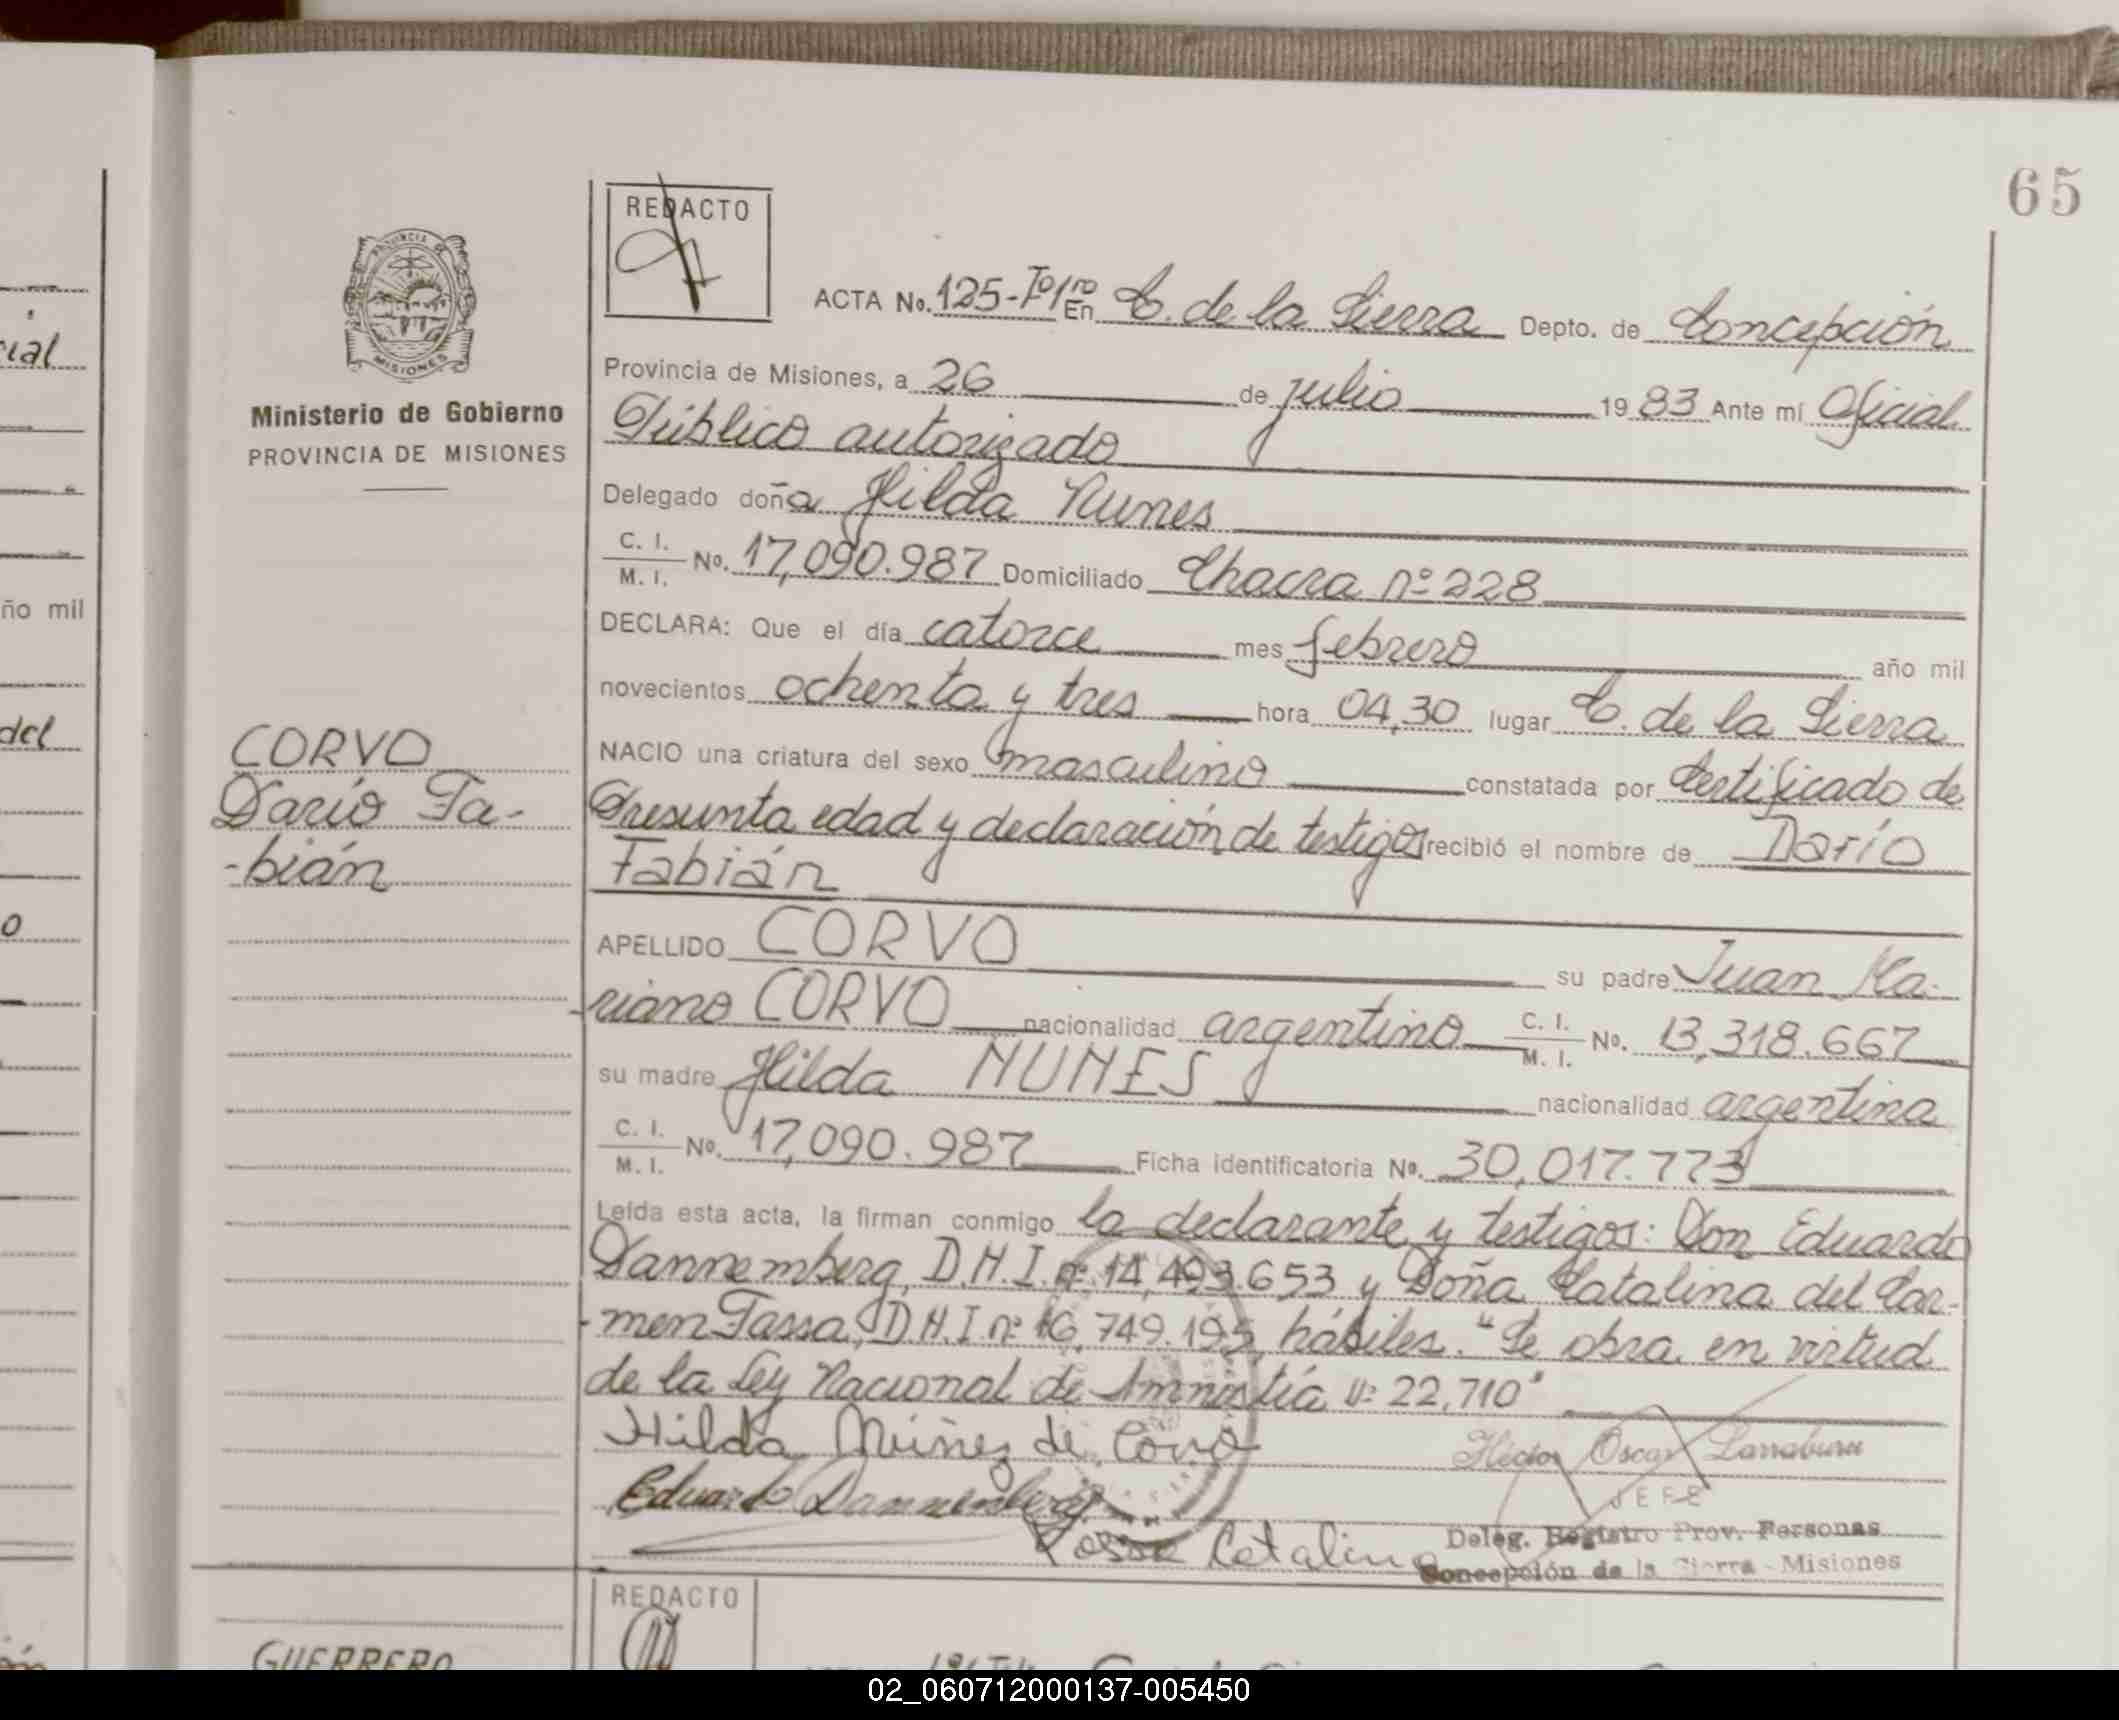 65
REDACTO
PROVINCIA DE
MISIONES
Ministerio de Gobierno
PROVINCIA DE MISIONES
ACTA No. 125-Tº1ro En C. de la Sierra Depto. de Concepción
Provincia de Misiones, a 26 de julio 1983 Ante mí Oficial
Público autorizado
Delegado doña Hilda Nunes
C. I. / M. I. No. 17,090.987 Domiciliado Chacra nº 228
DECLARA: Que el día catorce mes febrero año mil
novecientos ochenta y tres hora 04,30 lugar C. de la Sierra
NACIO una criatura del sexo masculino constatada por Certificado de
Presunta edad y declaración de testigos recibió el nombre de Darío
Fabián
APELLIDO CORVO su padre Juan Ma-
-riano CORVO nacionalidad argentino C. I. / M. I. No. 13,318.667
su madre Hilda NUNES nacionalidad argentina
C. I. / M. I. No. 17,090.987 Ficha identificatoria No. 30,017.773
Leída esta acta, la firman conmigo la declarante y testigos: Don Eduardo
Dannemberg, D.N.I. nº 14,493.653 y Doña Catalina del Car-
-men Fassa, D.N.I. nº 16,749.195, hábiles. "Se obra en virtud
de la Ley Nacional de Amnistía Nº 22,710"
Hilda Núñez de Corvo
Eduardo Dannemberg
Catalina
Héctor Oscar Larraburu
JEFE
Deleg. Registro Prov. Personas
Concepción de la Sierra - Misiones
CORVO
Darío Fa-
-bián
REDACTO
GUERRERO
cial
ño mil
del
o
02_060712000137-005450